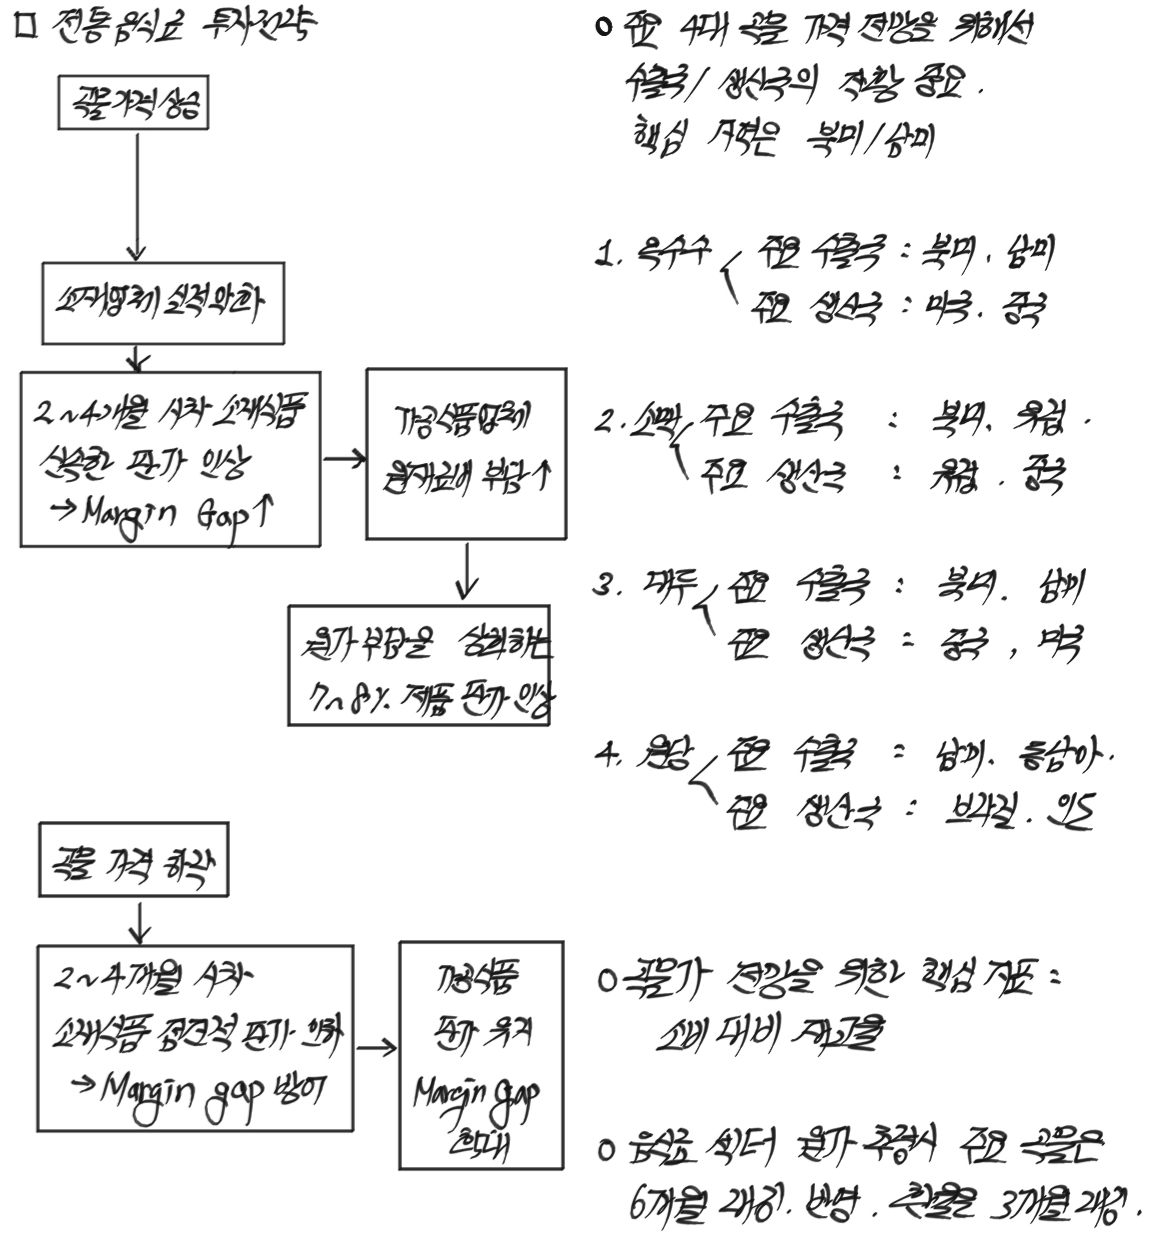 □ 전통 음식료 투자전략
곡물가격 상승
소재업체 실적악화
2~4개월 시차 소재식품
신속한 판가 인상
→ Margin Gap↑
가공식품업체
원재료비 부담↑
원가 부담을 상회하는
7~8% 제품 판가 인상
곡물 가격 하락
2~4개월 시차
소재식품 점진적 판가 인하
→ Margin gap 방어
가공식품
판가 유지
Margin gap
확대
o 주요 4대 곡물 가격 전망을 위해선
수출국/생산국의 작황 중요.
핵심 지역은 북미/남미
1. 옥수수 주요 수출국 : 북미, 남미
주요 생산국 : 미국, 중국
2. 소맥 주요 수출국 : 북미, 유럽.
주요 생산국 : 유럽, 중국
3. 대두 주요 수출국 : 북미, 남미
주요 생산국 = 중국, 미국
4. 원당 주요 수출국 = 남미, 동남아.
주요 생산국 : 브라질, 인도
o 곡물가 전망을 위한 핵심 지표 =
소비 대비 재고율
o 음식료 섹터 원가 추정시 주요 곡물은
6개월 래깅. 반영. 환율은 3개월 래깅.